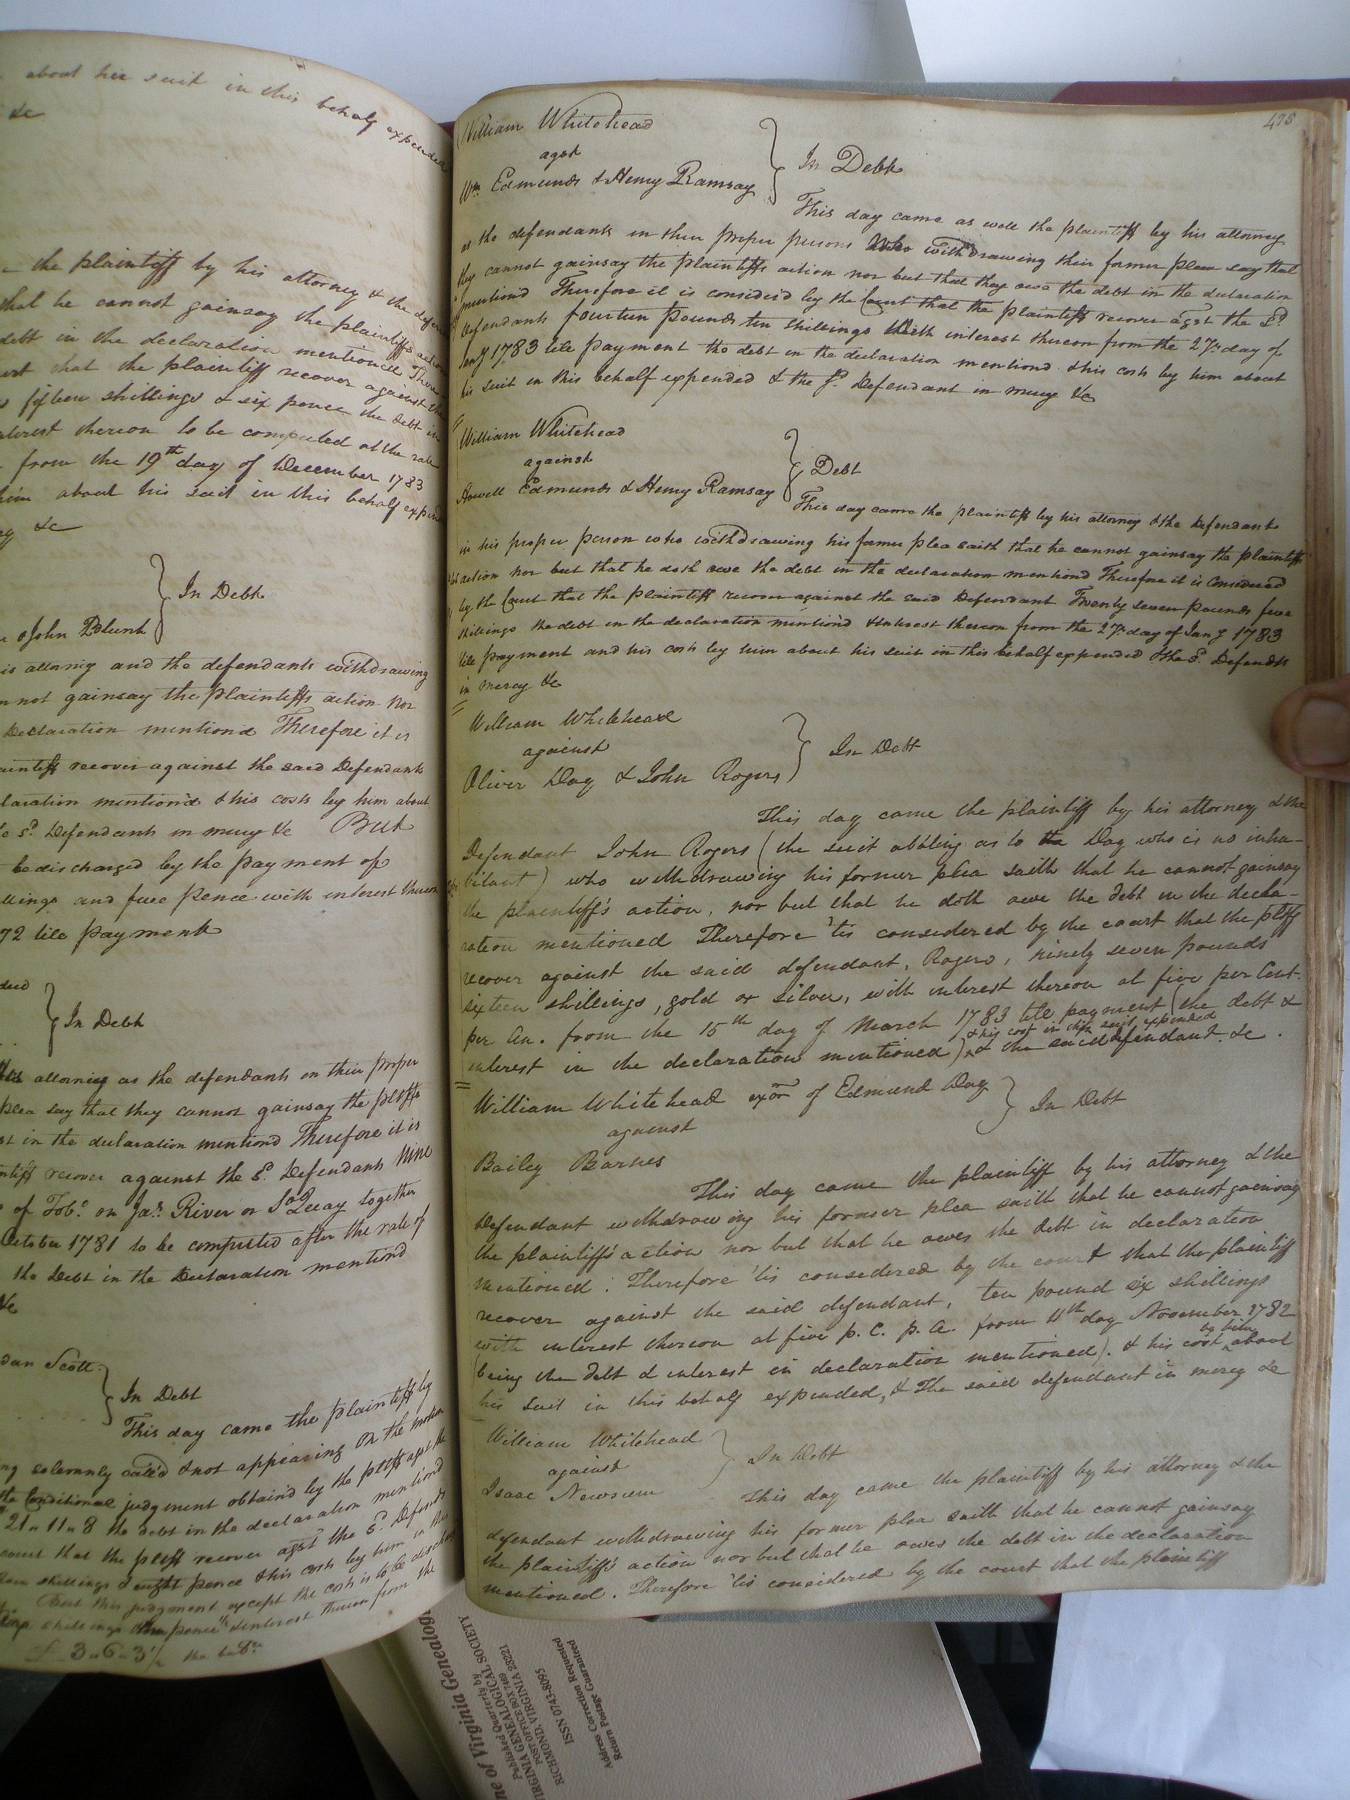 about his suit in this behalf expended
&c
the plaintiff by his attorney & the defen
that he cannot gainsay the plaintiffs action
debt in the declaration mentioned There
that the plaintiff recover against the
fifteen shillings & six pence the debt in
interest thereon to be computed at the rate
from the 19th day of December 1783
him about his suit in this behalf expen
&c
In Debt
& John Blunt
his attorney and the defendants withdrawing
not gainsay the plaintiffs action nor
Declaration mentiond Therefore it is
plaintiff recover against the said Defendants
declaration mentiond & his costs by him about
Sd. Defendants in mercy &c But
be discharged by the payment of
shillings and five pence with interest thereon
72 till payment
In Debt
attorney as the defendants in their proper
plea say that they cannot gainsay the pltffs
in the declaration mentiond Therefore it is
plaintiff recover against the Sd. Defendants Nine
of Tobo. on Jas. River or So Quay together
October 1781 to be computed after the rate of
the Debt in the Declaration mentiond
&c
dan Scott
In Debt
This day came the plaintiff by
solemnly called & not appearing On the motion
the Conditional judgment obtaind by the pltff agst the
21 " 11 " 8 the debt in the declaration mentiond
court that the pltff recover agst the Sd. Defends
shillings & eight pence & his costs by him in this
But this judgment except the costs is to be discharg
shillings & pence & interest thereon from the
£ 3 " 6 " 3 1/2
475
William Whitehead
agst
Wm Edmunds & Henry Ramsay
In Debt
This day came as well the plaintiff by his attorney
as the defendants in their proper persons Who withdrawing their former plea say that
they cannot gainsay the plaintiffs action nor but that they owe the debt in the declaration
mentiond Therefore it is considerd by the Court that the plaintiff recover agst the Sd.
Defendants fourteen pounds ten shillings With interest thereon from the 27th day of
Jany 1783 till payment the debt in the declaration mentiond & his costs by him about
his suit in this behalf expended & the Sd. Defendant in mercy &c
William Whitehead
against
Howell Edmunds & Henry Ramsay
Debt
This day came the plaintiff by his attorney & the Defendants
in his proper person who withdrawing his former plea saith that he cannot gainsay the plaintiffs
action nor but that he doth owe the debt in the declaration mentiond Therefore it is Considered
by the Court that the plaintiff recover against the said Defendant Twenty seven pounds five
shillings the debt in the declaration mentiond & interest thereon from the 27th day of Jany 1783
till payment and his costs by him about his suit in this behalf expended & the Sd. Defendts
in mercy &c
William Whitehead
against
Oliver Day & John Rogers
In Debt
This day came the plaintiff by his attorney & the
Defendant John Rogers (the suit abating as to the Day who is no inha-
bitant) who withdrawing his former plea saith that he cannot gainsay
the plaintiff's action, nor but that he doth owe the debt in the decla-
ration mentioned Therefore 'tis considered by the court that the pltff
recover against the said defendant, Rogers, ninety seven pounds
sixteen shillings, gold or silver, with interest thereon at five per Cent.
per An. from the 15th day of March 1783 till payment (the debt &
& his cost in this suit expended
interest in the declaration mentioned) & the said defendant &c.
William Whitehead exor of Edmund Day
against
Bailey Barnes
In Debt
This day came the plaintiff by his attorney & the
defendant withdrawing his former plea saith that he cannot gainsay
the plaintiff's action nor but that he owes the debt in declaration
mentioned: Therefore 'tis considered by the court that the plaintiff
recover against the said defendant, ten pound six shillings
with interest thereon at five p. C. p. A. from 11th day November 1782
by him
(being the debt & interest in declaration mentioned). & his cost about
his suit in this behalf expended, & The said defendant in mercy &c
William Whitehead
against
Isaac Newsum
In Debt
This day came the plaintiff by his attorney & the
defendant withdrawing his former plea saith that he cannot gainsay
the plaintiff's action nor but that he owes the debt in the declaration
mentioned. Therefore 'tis considered by the court that the plaintiff
ne of Virginia Genealog
Published Quarterly by
VIRGINIA GENEALOGICAL SOCIETY
POST OFFICE BOX 7469
RICHMOND, VIRGINIA 23221
ISSN 0743-8095
Address Correction Requested
Return Postage Guaranteed